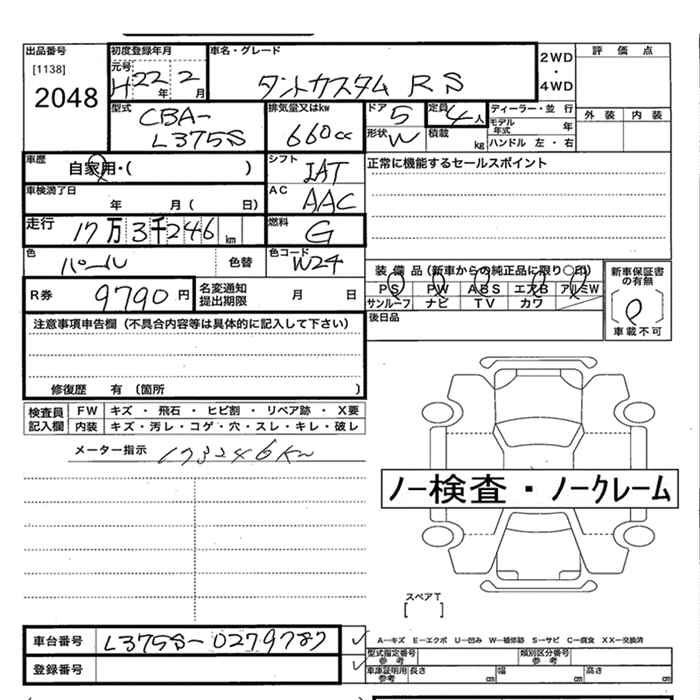 出品番号
[1138]
2048
初度登録年月
元号
H 22年 2月
車名・グレード
タントカスタム RS
2WD
・
4WD
評価点
外装 内装
型式
CBA-
L375S
排気量又はkw
660cc
ドア 5
定員 4人
形状 W
積載 kg
ディーラー・並行
モデル年式 年
ハンドル 左・右
車歴
自家用・( )
シフト
IAT
正常に機能するセールスポイント
車検満了日
年 月( 日)
AC
AAC
走行 17万3千246km
燃料
G
色
パール
色替
色コード
W24
R券 9790円
名変通知
提出期限
月 日
装備品(新車からの純正品に限り○印)
PS PW ABS エアB アルミW
サンルーフ ナビ TV カワ
新車保証書
の有無
車載不可
後日品
注意事項申告欄(不具合内容等は具体的に記入して下さい)
修復歴 有(箇所 )
検査員
記入欄
FW キズ・飛石・ヒビ割・リペア跡・X要
内装 キズ・汚レ・コゲ・穴・スレ・キレ・破レ
メーター指示 173246Km
ノー検査・ノークレーム
スペアT
[ ]
車台番号 L375S-0279787
登録番号
A―キズ E―エクボ U―凹み W―補修跡 S―サビ C―腐食 XX―交換済
型式指定番号
参考
類別区分番号
参考
車庫証明用
参考
長さ cm 幅 cm 高さ cm